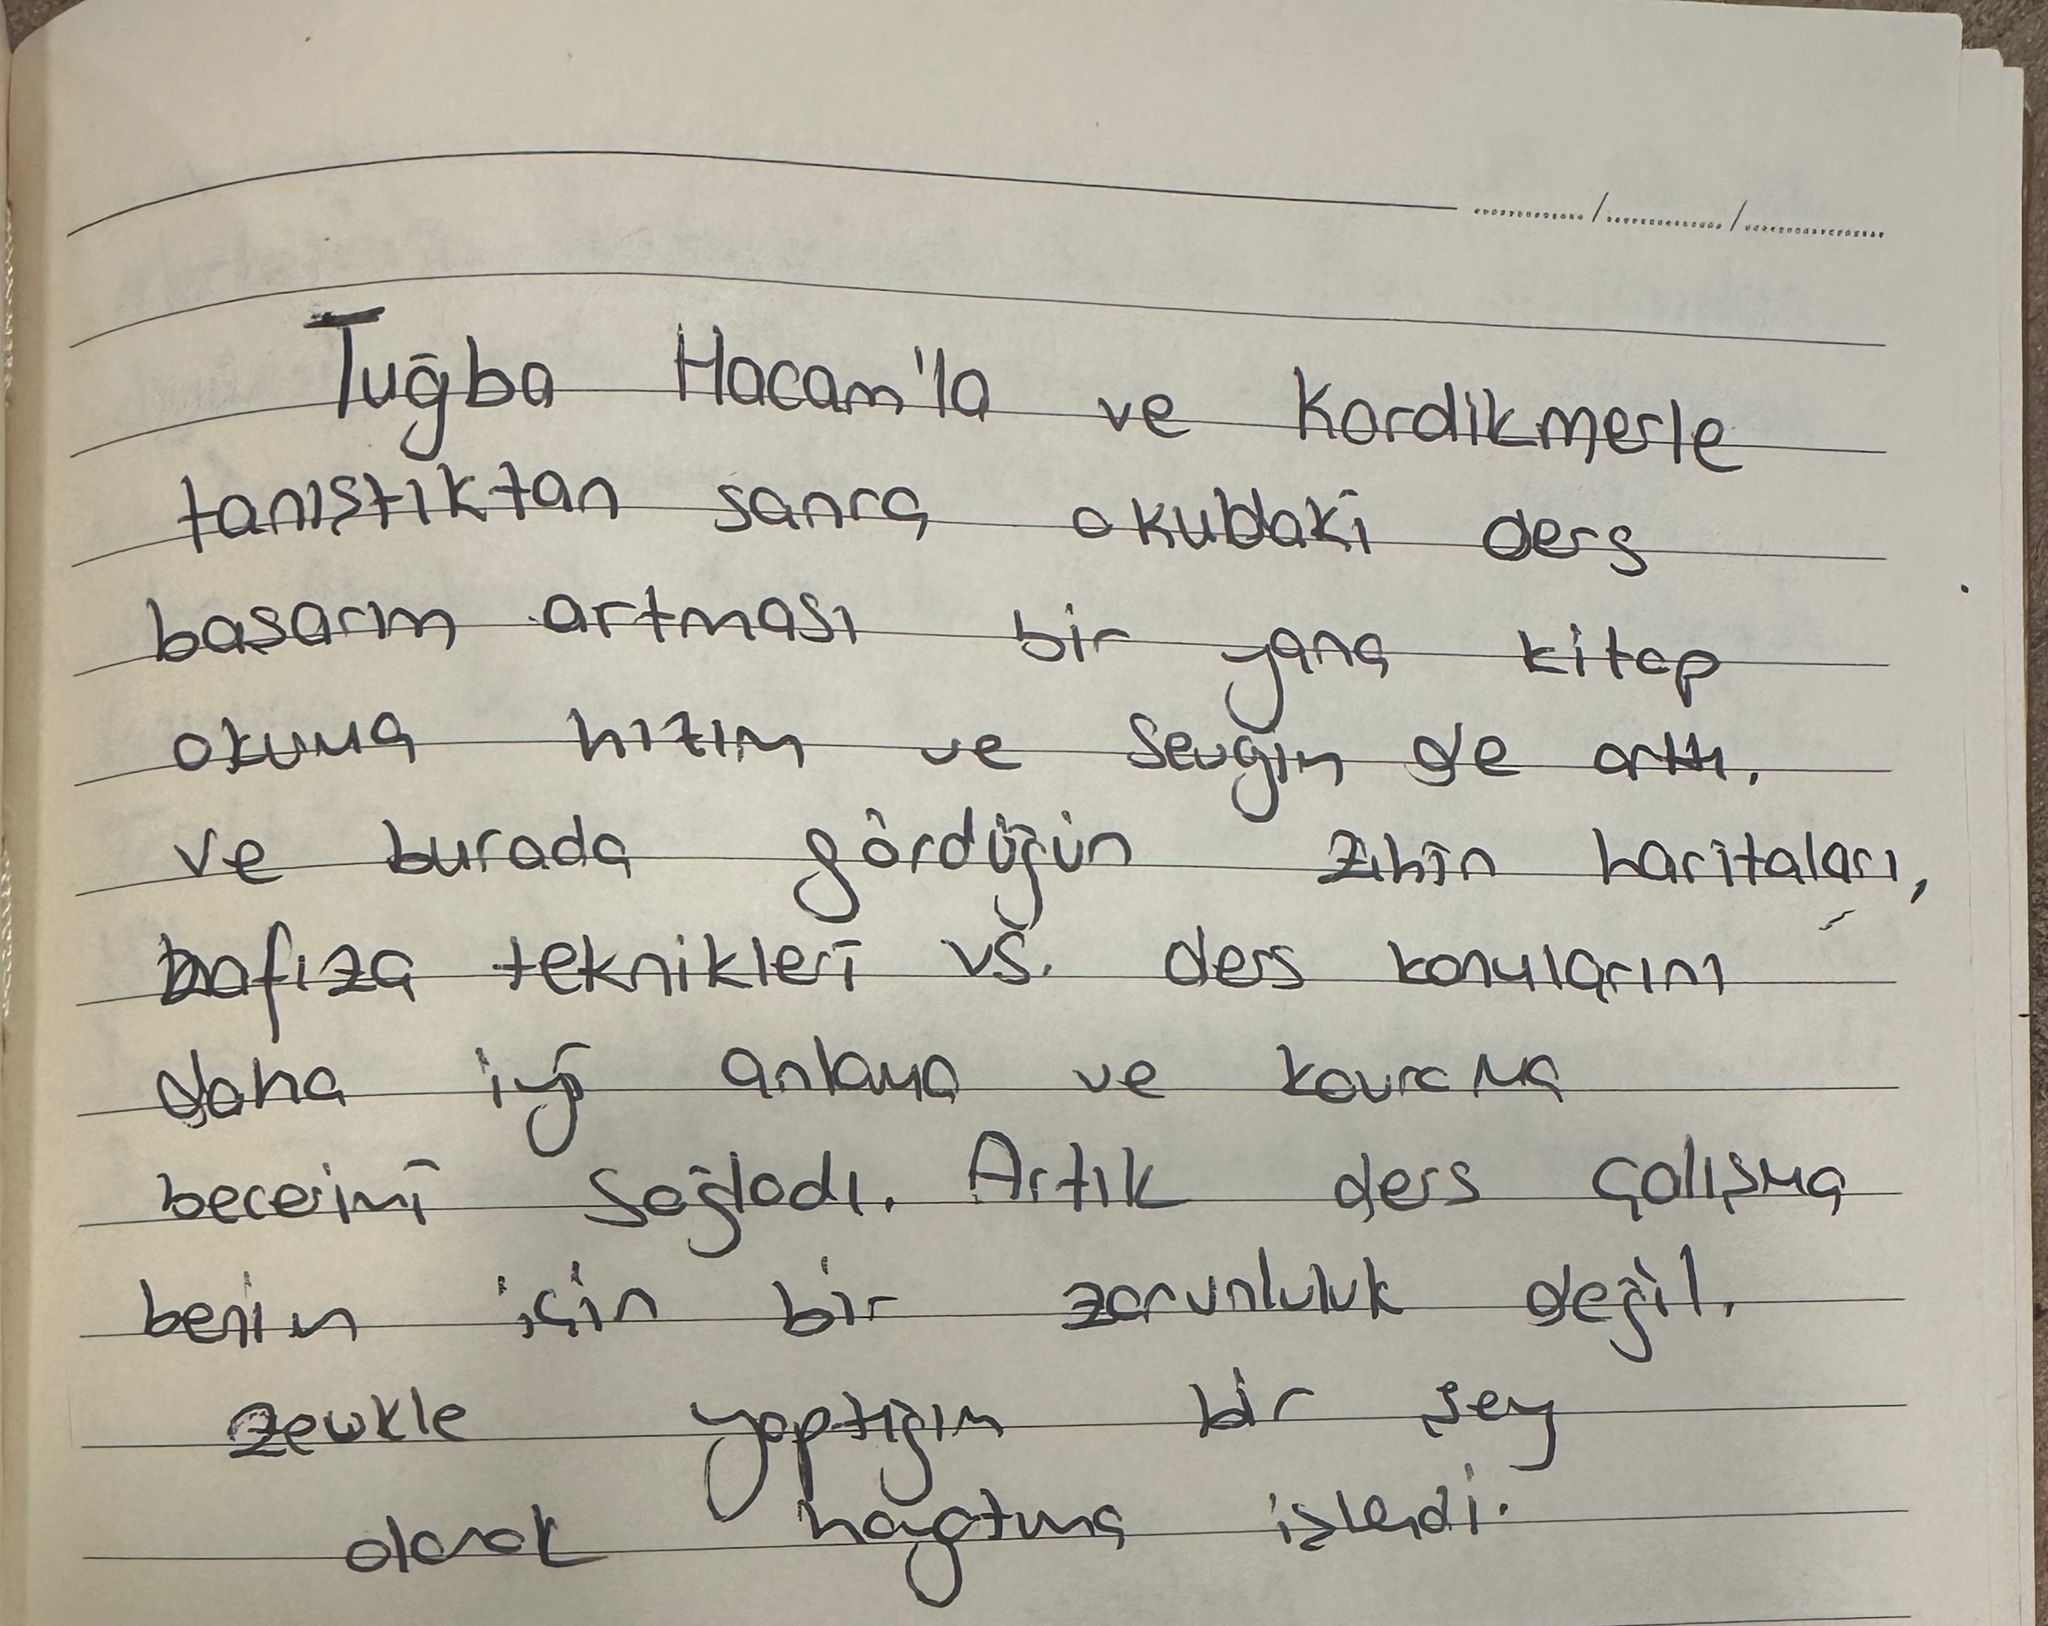 Tuğba Hocam'la ve Kardikmerle
tanıştıktan sonra okuldaki ders
başarım artması bir yana kitap
okuma hızım ve sevgim de arttı.
ve burada gördüğüm zihin haritaları,
hafıza teknikleri vs. ders konularını
daha iyi anlama ve kavrama
becerimi sağladı. Artık ders çalışma
benim için bir zorunluluk değil,
zevkle yaptığım bir şey
olarak hayatıma işlendi.